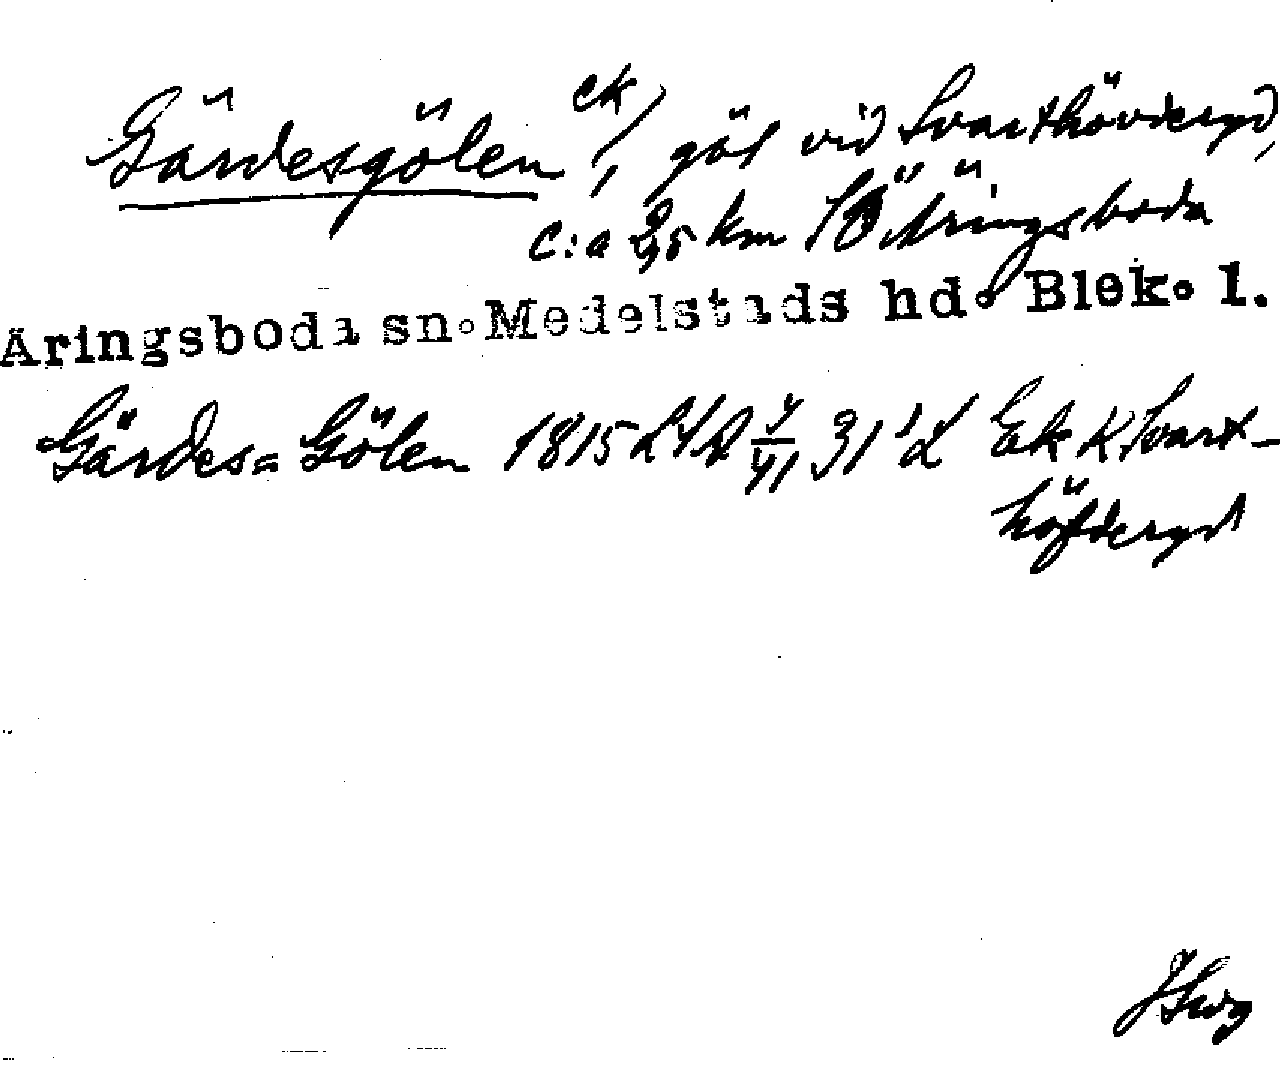 Gärdesgölen ek/, göl vid Svarthövderyd,
c:a 2,5 km SÖ Äringsboda
Äringsboda sn. Medelstads hd. Blek. l.
Gärdes=Gölen 1815 31 Ek K Svart-
höfderyd